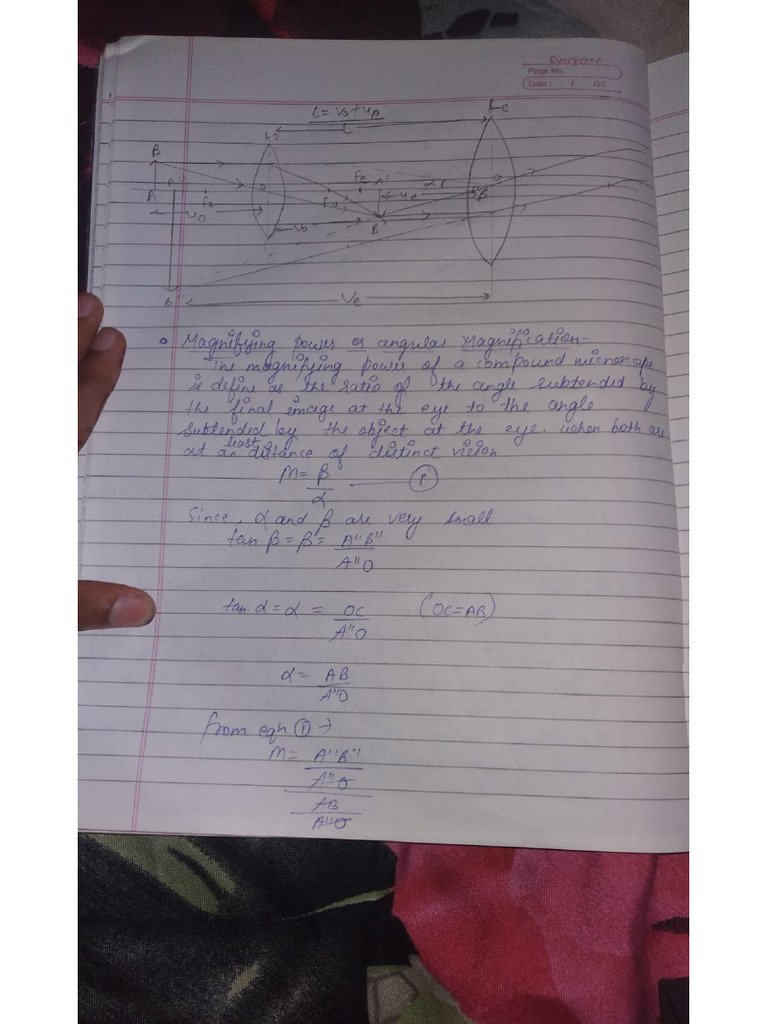 Evergreen
Page No.
Date : / /20
L = v₀ + uₑ
L
Lo
Le
B
A
A"
fo
O
Fe
A'
fo
ue
α
β
O
uo
vo
B'
B"
Ve
Magnifying power or angular Magnification-
The magnifying power of a compound microscope
is define as the ratio of the angle subtended by
the final image at the eye to the angle
subtended by the object at the eye. when both are
at a least distance of distinct vision
M = β/α ——— (1)
Since, α and β are very small
tan β = β = A"B"/A"O
tan α = α = OC/A"O (OC=AB)
α = AB/A"O
from eqn (1) →
M = A"B"
A"O
AB
A"O